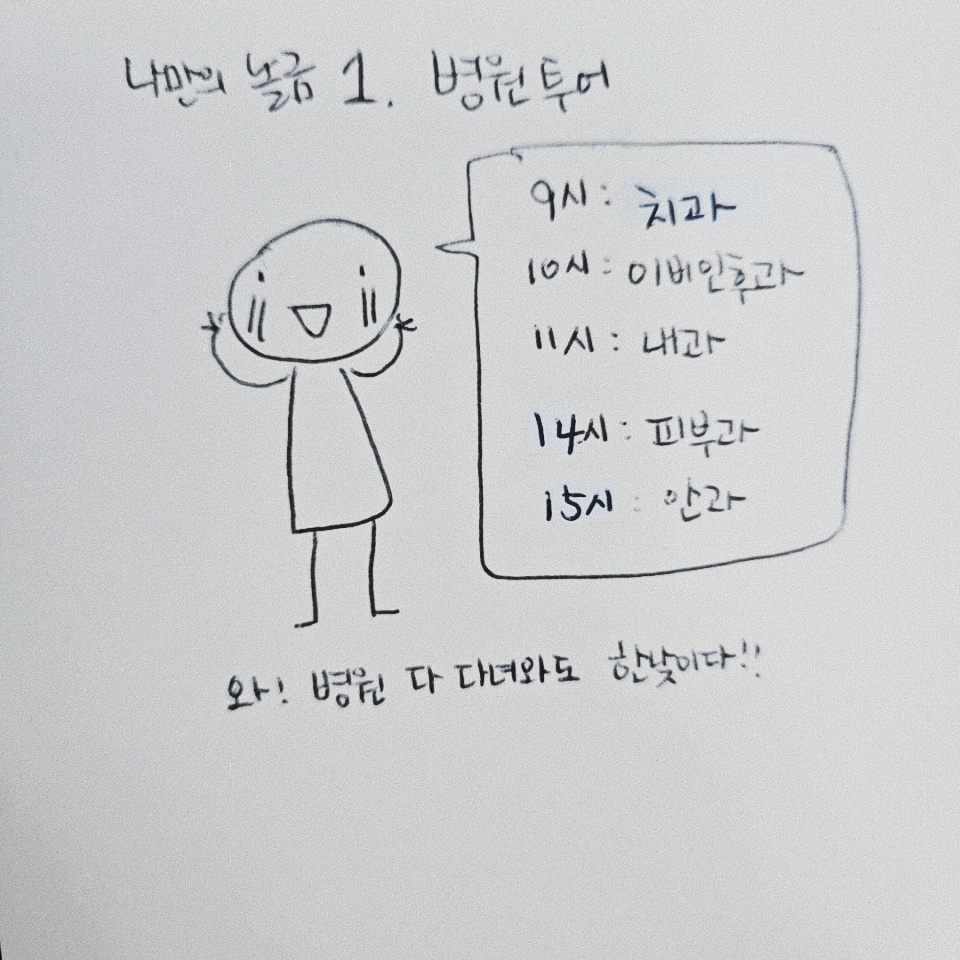 나만의 놀금 1. 병원투어
9시 : 치과
10시 : 이비인후과
11시 : 내과
14시 : 피부과
15시 : 안과
와! 병원 다 다녀와도 한낮이다!!